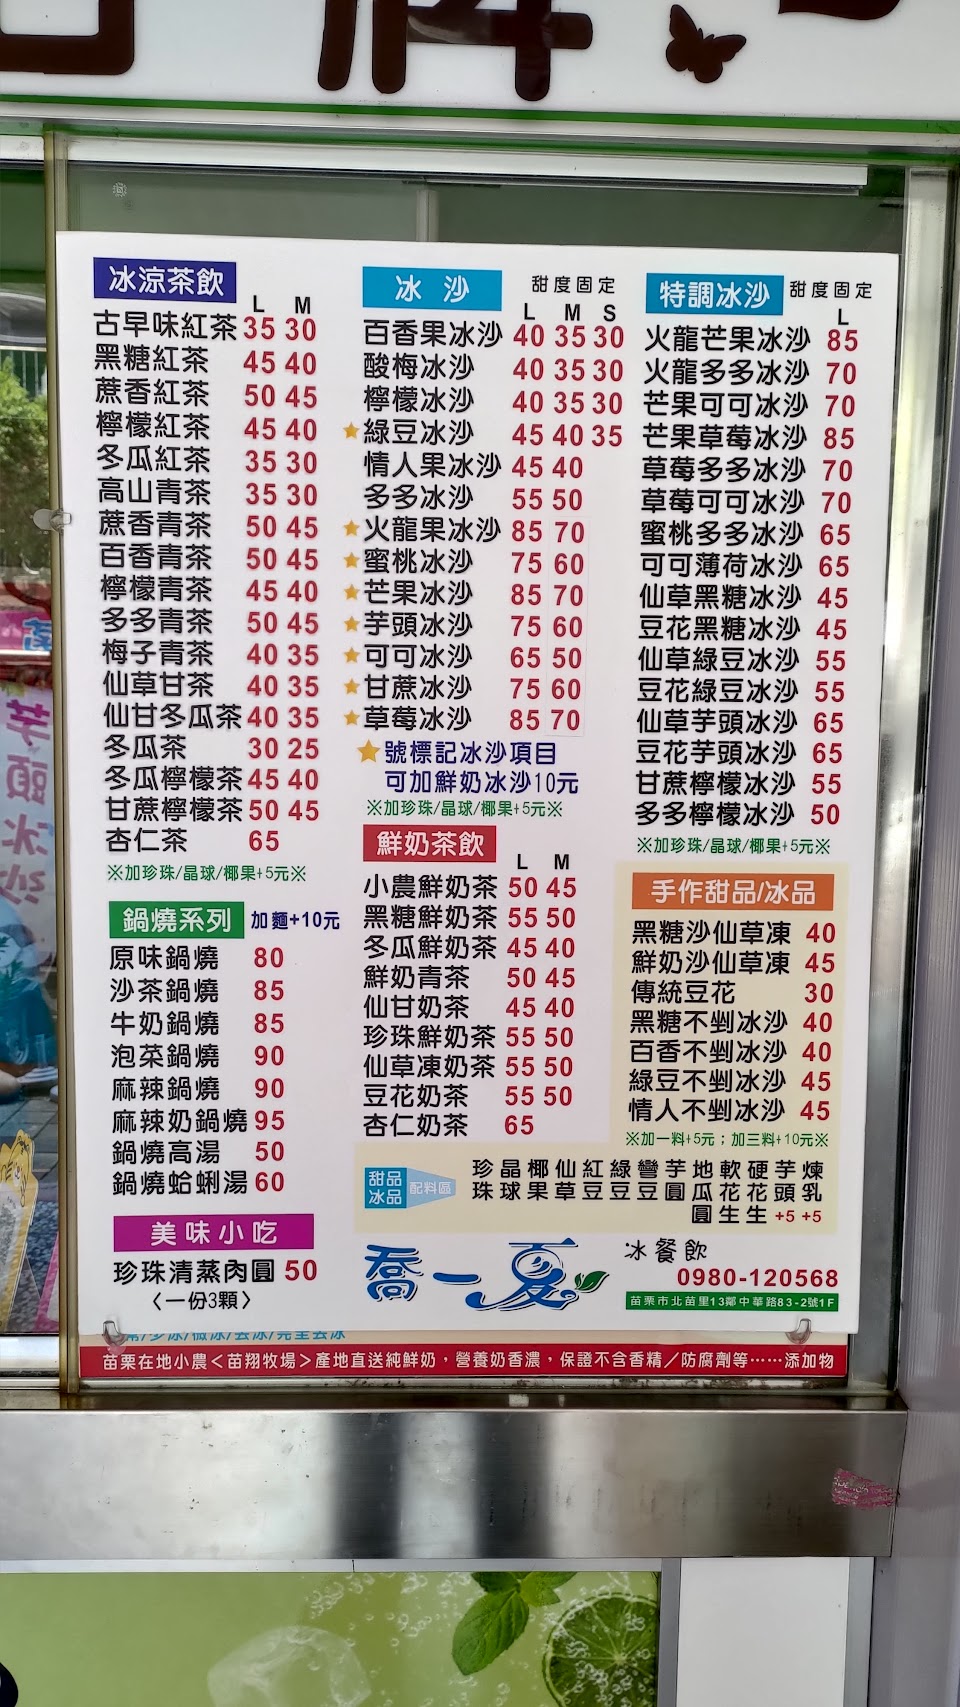 冰涼茶飲
L M
古早味紅茶 35 30
黑糖紅茶 45 40
蔗香紅茶 50 45
檸檬紅茶 45 40
冬瓜紅茶 35 30
高山青茶 35 30
蔗香青茶 50 45
百香青茶 50 45
檸檬青茶 45 40
多多青茶 50 45
梅子青茶 40 35
仙草甘茶 40 35
仙甘冬瓜茶 40 35
冬瓜茶 30 25
冬瓜檸檬茶 45 40
甘蔗檸檬茶 50 45
杏仁茶 65
※加珍珠/晶球/椰果+5元※
鍋燒系列 加麵+10元
原味鍋燒 80
沙茶鍋燒 85
牛奶鍋燒 85
泡菜鍋燒 90
麻辣鍋燒 90
麻辣奶鍋燒 95
鍋燒高湯 50
鍋燒蛤蜊湯 60
美味小吃
珍珠清蒸肉圓 50
〈一份3顆〉
冰沙 甜度固定
L M S
百香果冰沙 40 35 30
酸梅冰沙 40 35 30
檸檬冰沙 40 35 30
★綠豆冰沙 45 40 35
情人果冰沙 45 40
多多冰沙 55 50
★火龍果冰沙 85 70
★蜜桃冰沙 75 60
★芒果冰沙 85 70
★芋頭冰沙 75 60
★可可冰沙 65 50
★甘蔗冰沙 75 60
★草莓冰沙 85 70
★號標記冰沙項目
可加鮮奶冰沙10元
※加珍珠/晶球/椰果+5元※
鮮奶茶飲
L M
小農鮮奶茶 50 45
黑糖鮮奶茶 55 50
冬瓜鮮奶茶 45 40
鮮奶青茶 50 45
仙甘奶茶 45 40
珍珠鮮奶茶 55 50
仙草凍奶茶 55 50
豆花奶茶 55 50
杏仁奶茶 65
特調冰沙 甜度固定
L
火龍芒果冰沙 85
火龍多多冰沙 70
芒果可可冰沙 70
芒果草莓冰沙 85
草莓多多冰沙 70
草莓可可冰沙 70
蜜桃多多冰沙 65
可可薄荷冰沙 65
仙草黑糖冰沙 45
豆花黑糖冰沙 45
仙草綠豆冰沙 55
豆花綠豆冰沙 55
仙草芋頭冰沙 65
豆花芋頭冰沙 65
甘蔗檸檬冰沙 55
多多檸檬冰沙 50
※加珍珠/晶球/椰果+5元※
手作甜品/冰品
黑糖沙仙草凍 40
鮮奶沙仙草凍 45
傳統豆花 30
黑糖不剉冰沙 40
百香不剉冰沙 40
綠豆不剉冰沙 45
情人不剉冰沙 45
※加一料+5元；加三料+10元※
甜品冰品 配料區
珍珠 晶球 椰果 仙草 紅豆 綠豆 彎豆 芋圓 地瓜圓 軟花生 硬花生 芋頭+5 煉乳+5
喬一夏 冰餐飲
0980-120568
苗栗市北苗里13鄰中華路83-2號1F
苗栗在地小農＜苗翔牧場＞產地直送純鮮奶，營養奶香濃，保證不含香精／防腐劑等……添加物
芋頭冰沙